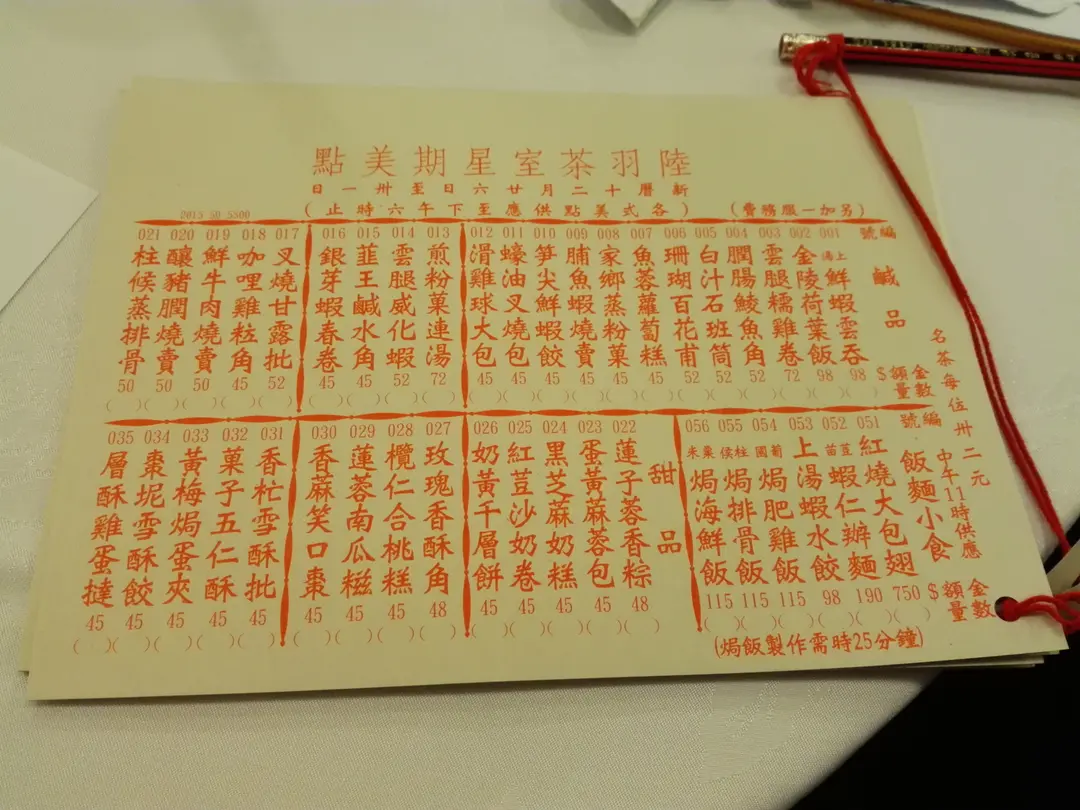 陸羽茶室星期美點
新曆十二月廿六日至卅一日
(各式美點供應至下午六時止)
(另加一服務費)
2015 50 5500
名茶每位卅二元
中午11時供應
編號
鹹品
$金額
數量
001 上湯鮮蝦雲吞 98 ( )
002 金陵荷葉飯 98 ( )
003 雲腿糯雞卷 72 ( )
004 膶腸鯪魚角 52 ( )
005 白汁石班筒 52 ( )
006 珊瑚百花甫 52 ( )
007 魚蓉蘿蔔糕 45 ( )
008 家鄉蒸粉菓 45 ( )
009 脯魚蝦燒賣 45 ( )
010 笋尖鮮蝦餃 45 ( )
011 蠔油叉燒包 45 ( )
012 滑雞球大包 45 ( )
013 煎粉菓連湯 72 ( )
014 雲腿威化蝦 52 ( )
015 韮王鹹水角 45 ( )
016 銀芽蝦春卷 45 ( )
017 叉燒甘露批 52 ( )
018 咖哩雞粒角 45 ( )
019 鮮牛肉燒賣 50 ( )
020 釀豬膶燒賣 50 ( )
021 柱候蒸排骨 50 ( )
編號
飯麵小食
$金額
數量
051 紅燒大包翅 750 ( )
052 荳苗蝦仁辦麵 190 ( )
053 上湯蝦水餃 98 ( )
054 葡國焗肥雞飯 115 ( )
055 柱侯焗排骨飯 115 ( )
056 粟米焗海鮮飯 115 ( )
(焗飯製作需時25分鐘)
甜品
022 蓮子蓉香粽 48 ( )
023 蛋黃麻蓉包 45 ( )
024 黑芝蔴奶糕 45 ( )
025 紅荳沙奶卷 45 ( )
026 奶黃千層餅 45 ( )
027 玫瑰香酥角 48 ( )
028 欖仁合桃糕 45 ( )
029 蓮蓉南瓜糍 45 ( )
030 香蔴笑口棗 45 ( )
031 香杧雪酥批 45 ( )
032 菓子五仁酥 45 ( )
033 黃梅焗蛋夾 45 ( )
034 棗坭雪酥餃 45 ( )
035 層酥雞蛋撻 45 ( )